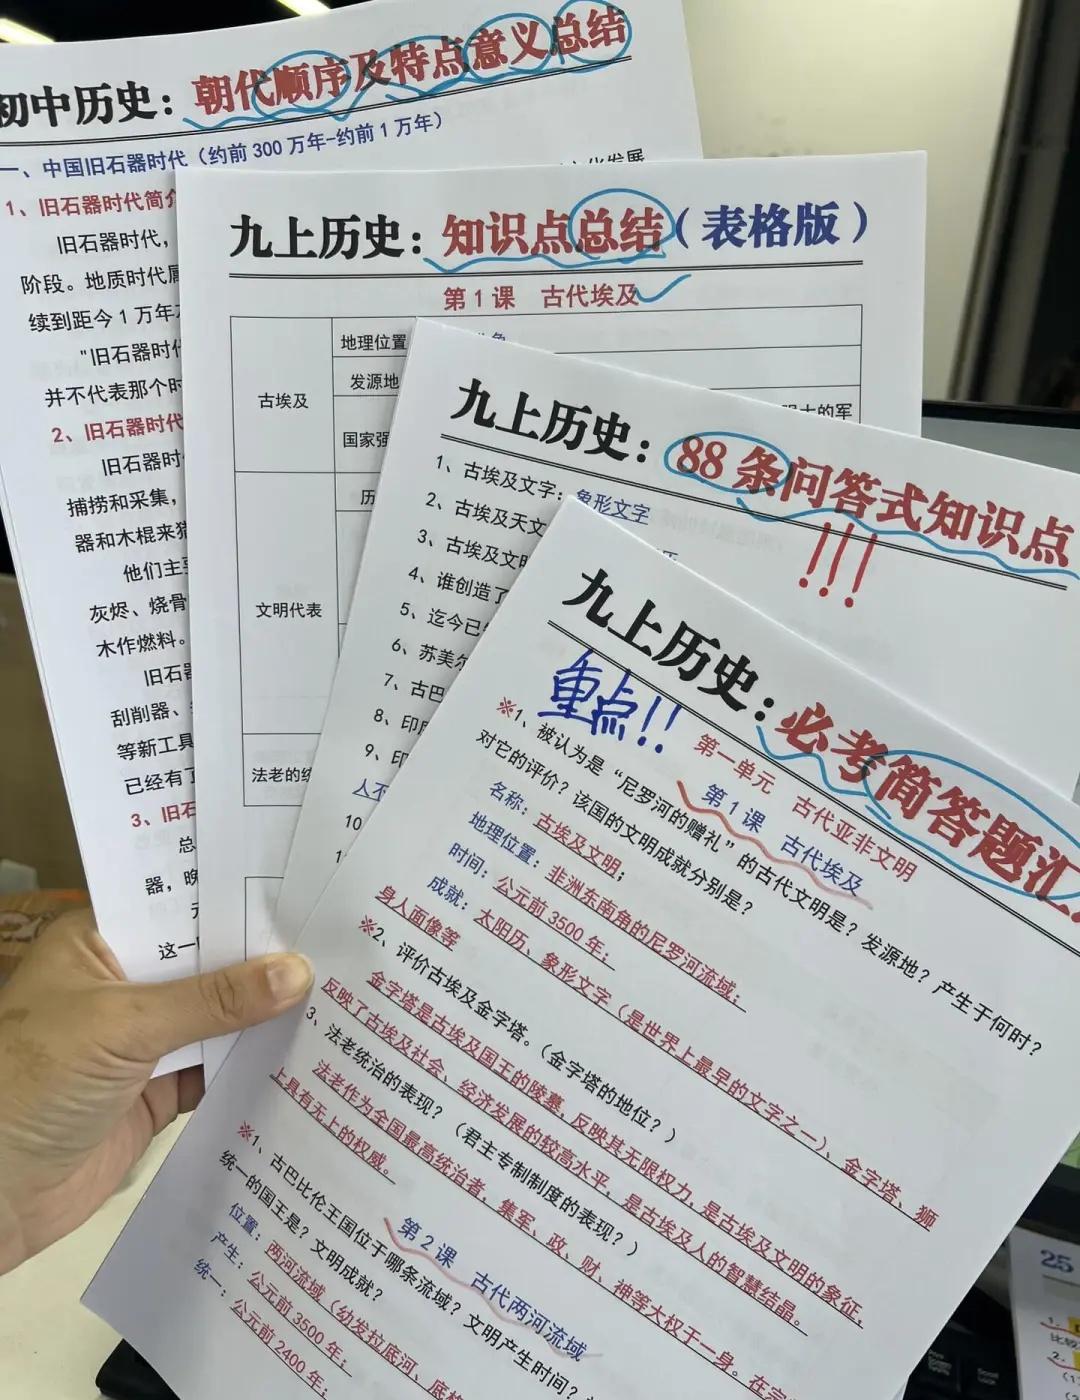 初中历史：朝代顺序及特点意义总结
一、中国旧石器时代（约前300万年-约前1万年）
1、旧石器时代简介
旧石器时代，
阶段。地质时代属
续到距今1万年
"旧石器时代
并不代表那个时
2、旧石器时代
旧石器时
捕捞和采集，
器和木棍来猎
他们主要
灰烬、烧骨
木作燃料。
旧石器
刮削器、
等新工具
已经有了
3、旧石
总
器，晚
这一
九上历史：知识点总结（表格版）
第1课 古代埃及
古埃及
地理位置
发源地
国家强
文明代表
历
法老的统
九上历史：88条问答式知识点
!!!
1、古埃及文字：象形文字
2、古埃及天文
3、古埃及文明
4、谁创造了
5、迄今已
6、苏美尔
7、古巴
8、印度
9、印
人不
10
1
九上历史：必考简答题汇
重点!!
第一单元 古代亚非文明
第1课 古代埃及
※1、被认为是“尼罗河的赠礼”的古代文明是？发源地？产生于何时？
对它的评价？该国的文明成就分别是？
名称：古埃及文明；
地理位置：非洲东南角的尼罗河流域；
时间：公元前3500年；
成就：太阳历、象形文字（是世界上最早的文字之一）、金字塔、狮
身人面像等
※2、评价古埃及金字塔。（金字塔的地位？）
金字塔是古埃及国王的陵墓，反映其无限权力，是古埃及文明的象征，
反映了古埃及社会、经济发展的较高水平，是古埃及人的智慧结晶。
3、法老统治的表现？（君主专制制度的表现？）
法老作为全国最高统治者，集军、政、财、神等大权于一身。在宗
上具有无上的权威。
第2课 古代两河流域
※1、古巴比伦王国位于哪条流域？文明产生时间？
统一的国王是？文明成就？
位置：两河流域（幼发拉底河、底格
产生：公元前3500年；
统一：公元前2400年；
25
1.
比较
2.